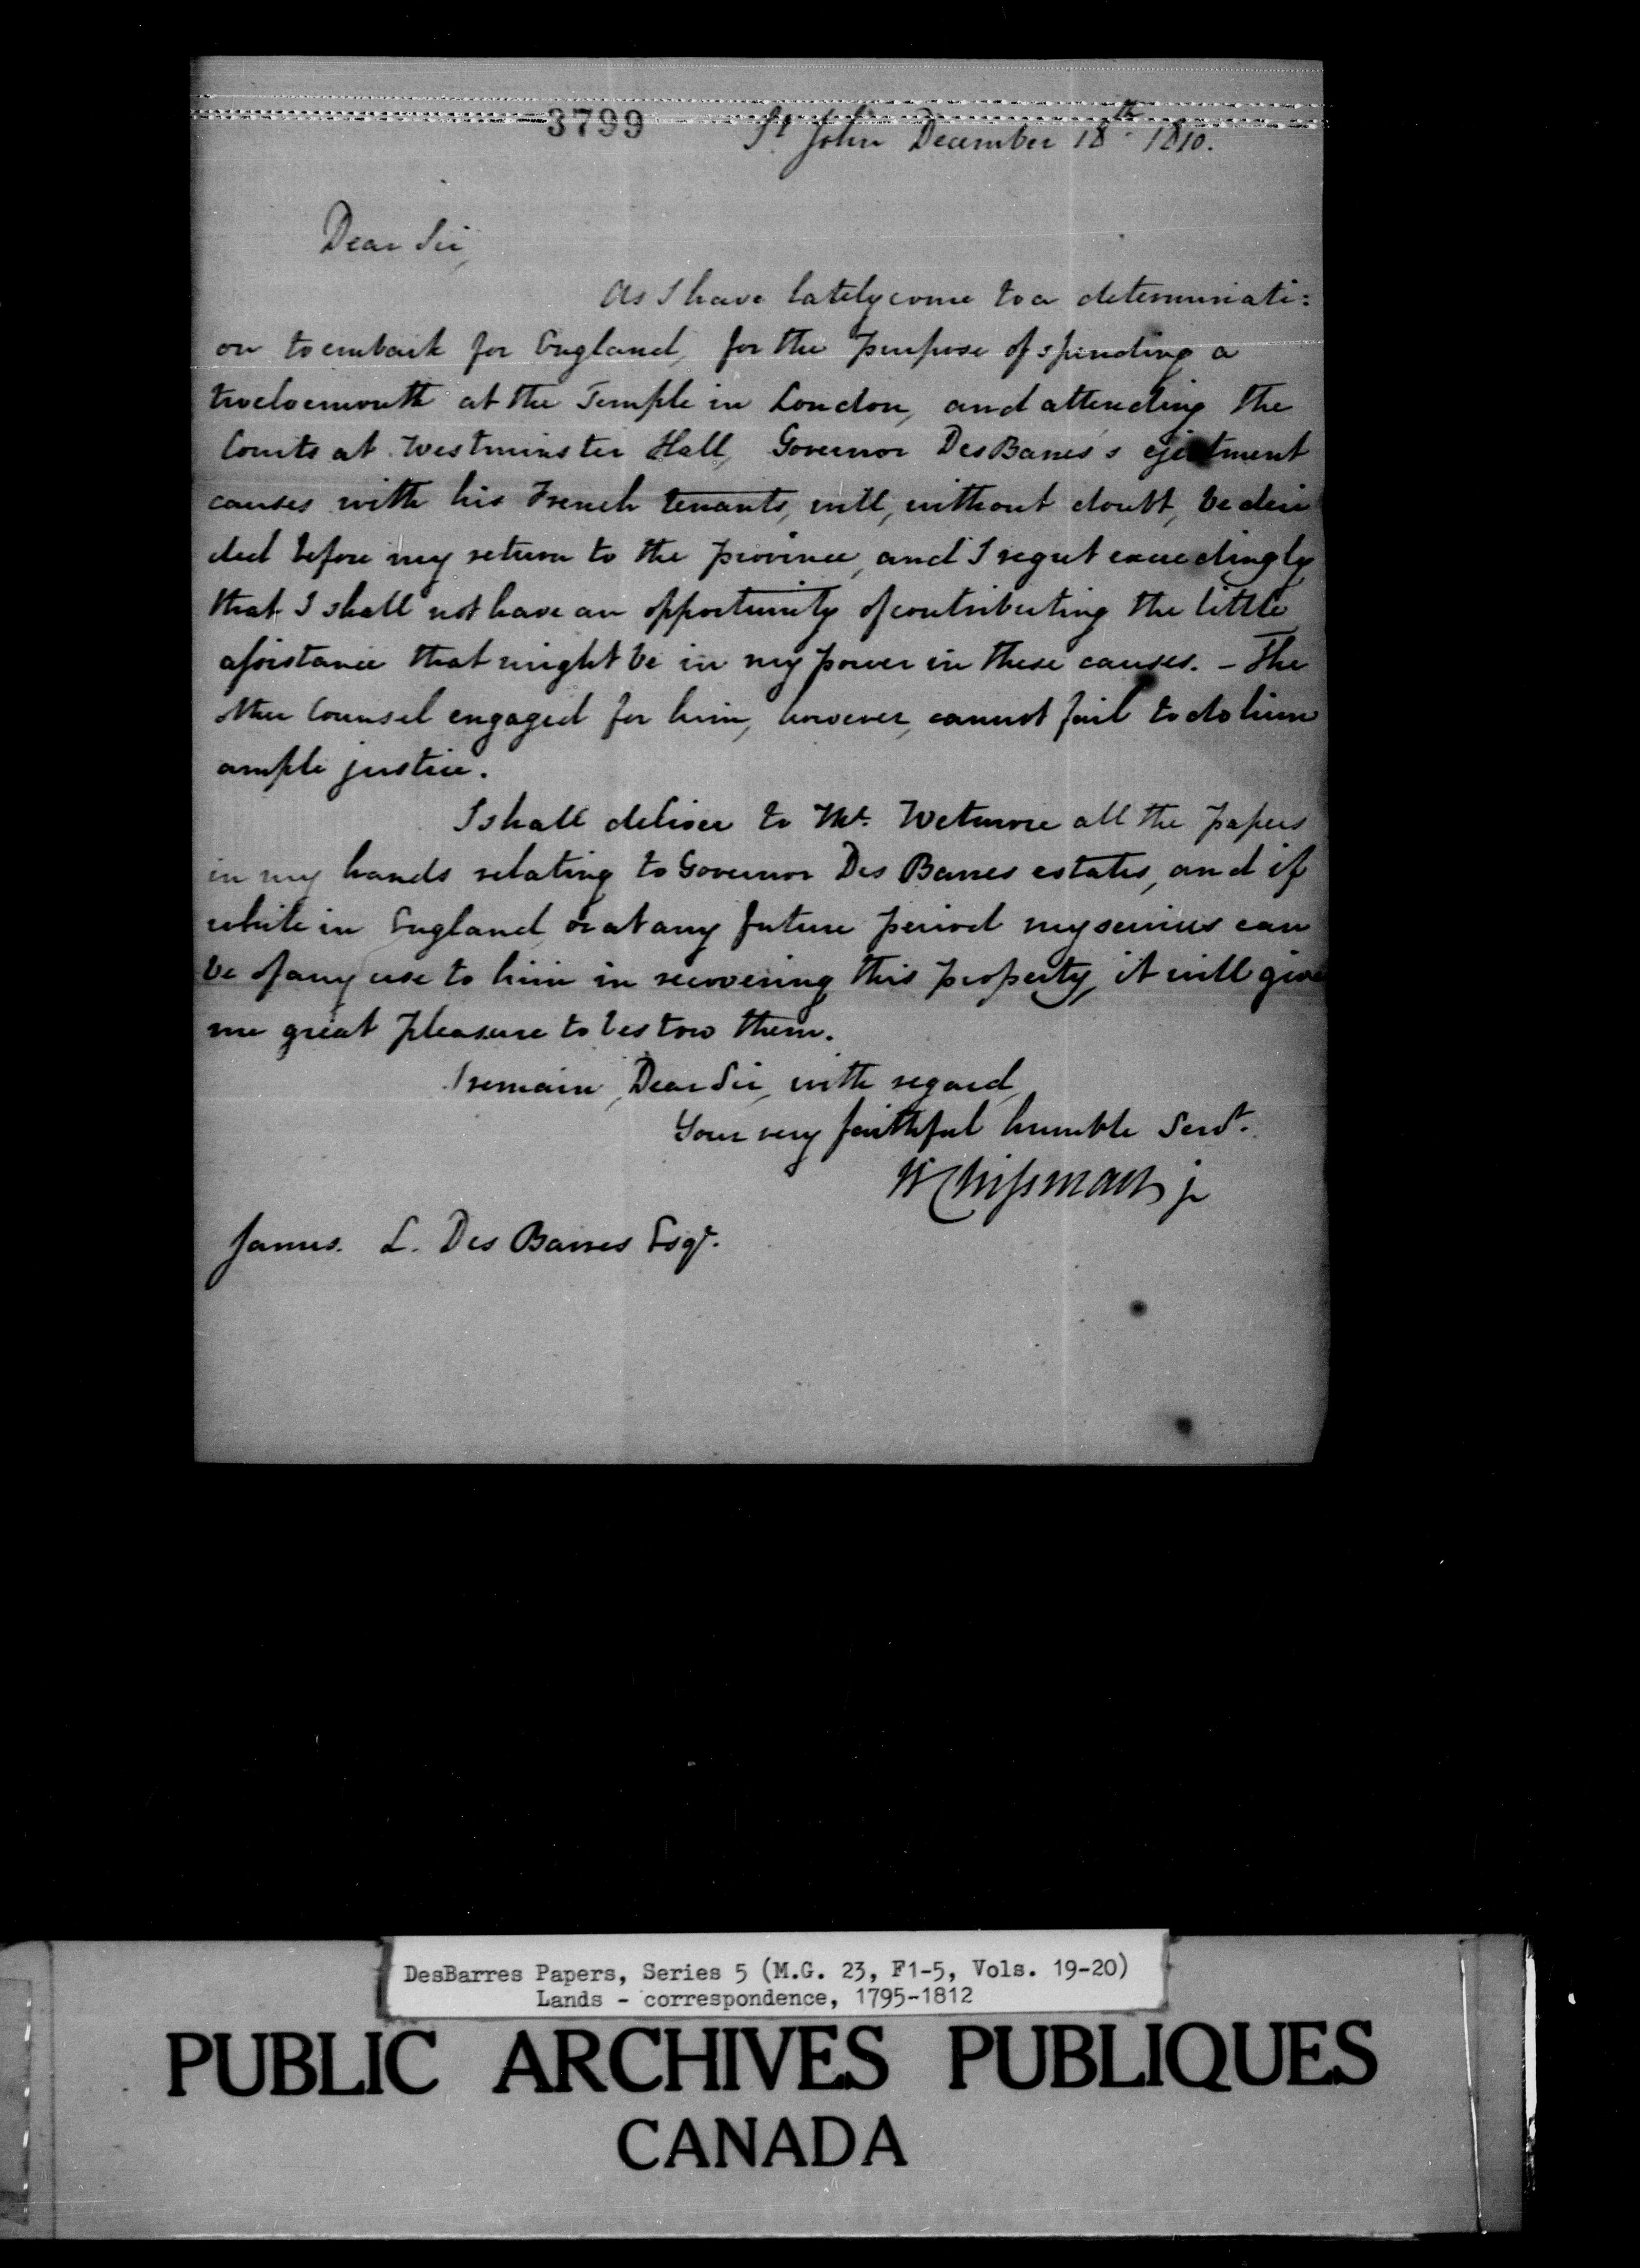 3799
St John December 18th 1810.
Dear Sir,
As I have lately come to a determinati:
on to embark for England, for the purpose of spending a
twelvemonth at the Temple in London, and attending the
Courts at Westminster Hall, Governor DesBarres's ejectment
causes with his French tenants, will, without doubt, be deci
ded before my return to the province, and I regret exceedingly
that I shall not have an opportunity of contributing the little
assistance that might be in my power in these causes. - The
other Counsel engaged for him, however, cannot fail to do him
ample justice.
I shall deliver to Mr. Wetmore all the papers
in my hands relating to Governor Des Barres estates, and if
while in England or at any future period my services can
be of any use to him in recovering this property, it will give
me great pleasure to bestow them.
I remain, Dear Sir, with regard,
Your very faithful humble Servt.
W Chipman jr
James. L. Des Barres Esqr.
DesBarres Papers, Series 5 (M.G. 23, F1-5, Vols. 19-20)
Lands - correspondence, 1795-1812
PUBLIC ARCHIVES PUBLIQUES
CANADA